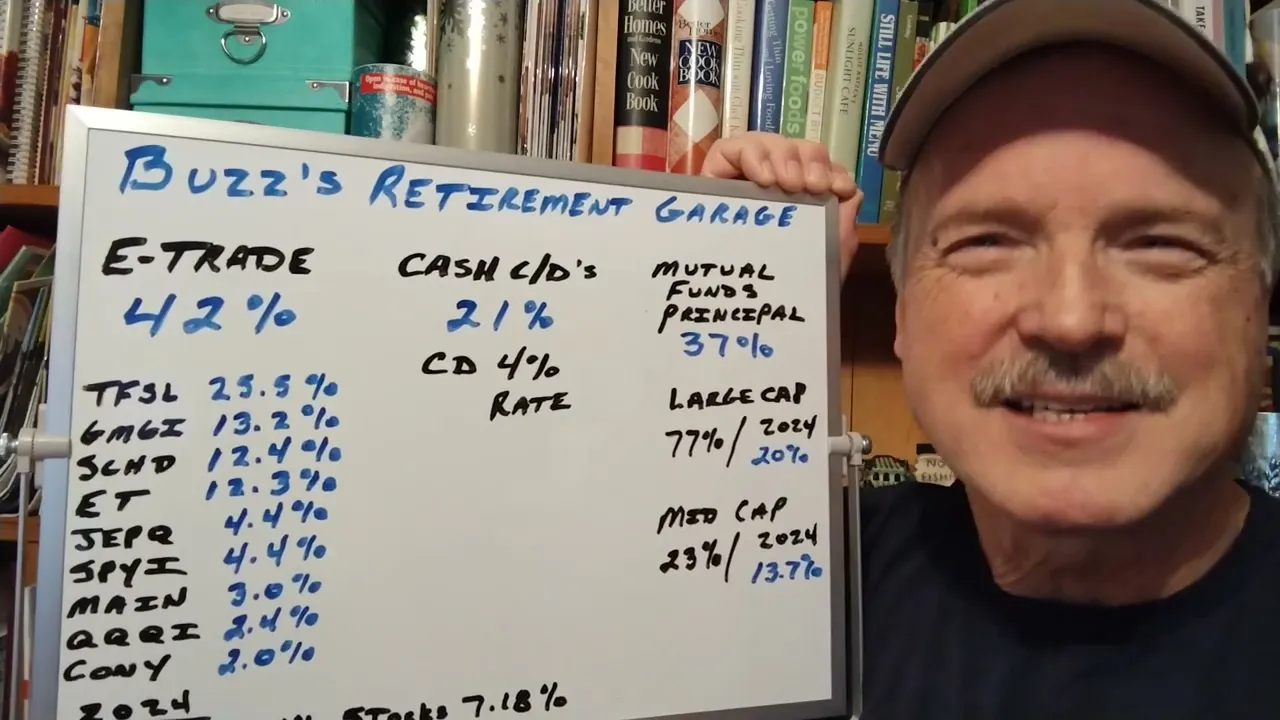 Better
Homes
and Gardens
New
Cook
Book
Better Homes
NEW
COOK
BOOK
Eating Thin
and Loving Food
power foods
SUNLIGHT CAFE
STILL LIFE WITH MENU
TAKE
Open in case of
BUZZ'S RETIREMENT GARAGE
E-TRADE
42%
TFSL 25.5%
GMGI 13.2%
SCHD 12.4%
ET 12.3%
JEPQ 4.4%
SPYI 4.4%
MAIN 3.0%
QQQI 2.4%
CONY 2.0%
2024
STOCKS 7.18%
CASH C/D'S
21%
CD 4%
RATE
MUTUAL
FUNDS
PRINCIPAL
37%
LARGE CAP
77%/ 2024
20%
MED CAP
23%/ 2024
13.7%
NO
FISHI